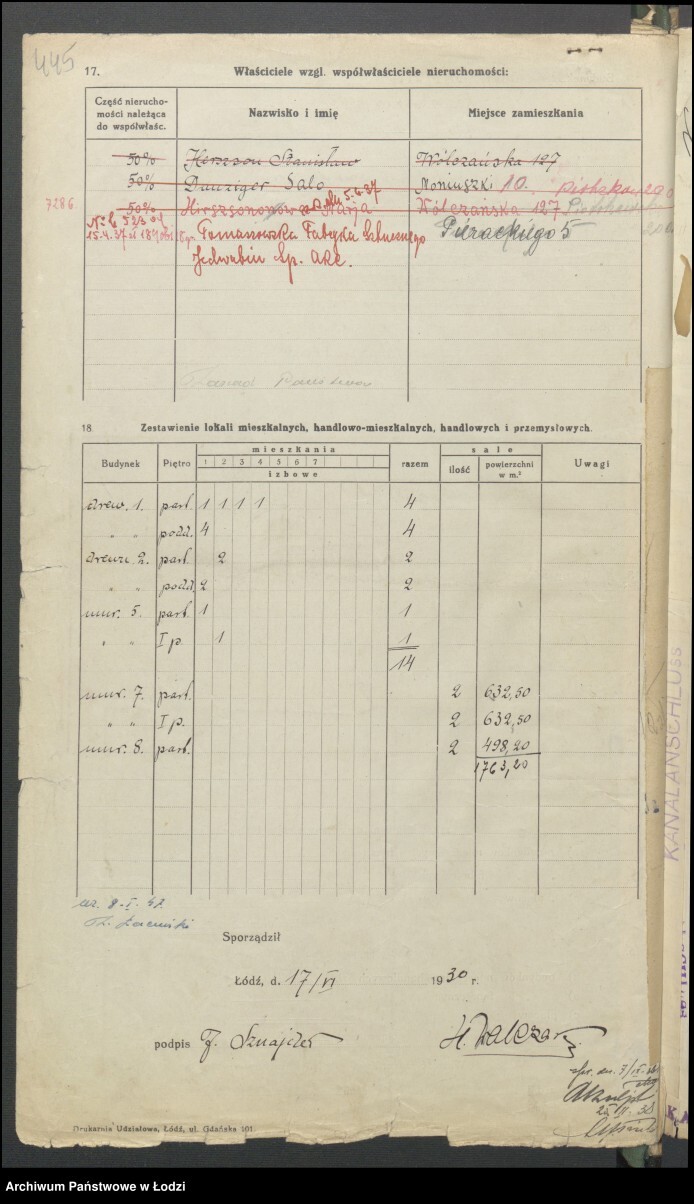 445
17. Właściciele wzgl. współwłaściciele nieruchomości:
Część nierucho-
mości należąca
do współwłaśc.
Nazwisko i imię
Miejsce zamieszkania
50% Herszson Stanisław Wólczańska 127
50% Danziger Salo Moniuszki 10.
5.4.37
7286 50% Marja Wólczańska 127
15.4.37
Tomaszowska Fabryka Sztucznego Pierackiego 5
Jedwabiu Sp. Akc.
18 Zestawienie lokali mieszkalnych, handlowo-mieszkalnych, handlowych i przemysłowych.
Budynek Piętro mieszkania razem sale Uwagi
1 2 3 4 5 6 7
izbowe
ilość powierzchni
w m.²
drew. 1. part. 1 1 1 1 4
" " podd. 4 4
drewn. 2. part. 2 2
" " podd. 2 2
mur. 5. part. 1 1
" " I p. 1 1
14
mur. 7. part. 2 632,50
" " I p. 2 632,50
mur. 8. part. 2 498,20
1763,20
KANALANSCHLUSS
Sporządził
Łódź, d. 17/VI 1930 r.
podpis F. Sznajder
Drukarnia Udziałowa, Łódź, ul. Gdańska 101
Archiwum Państwowe w Łodzi